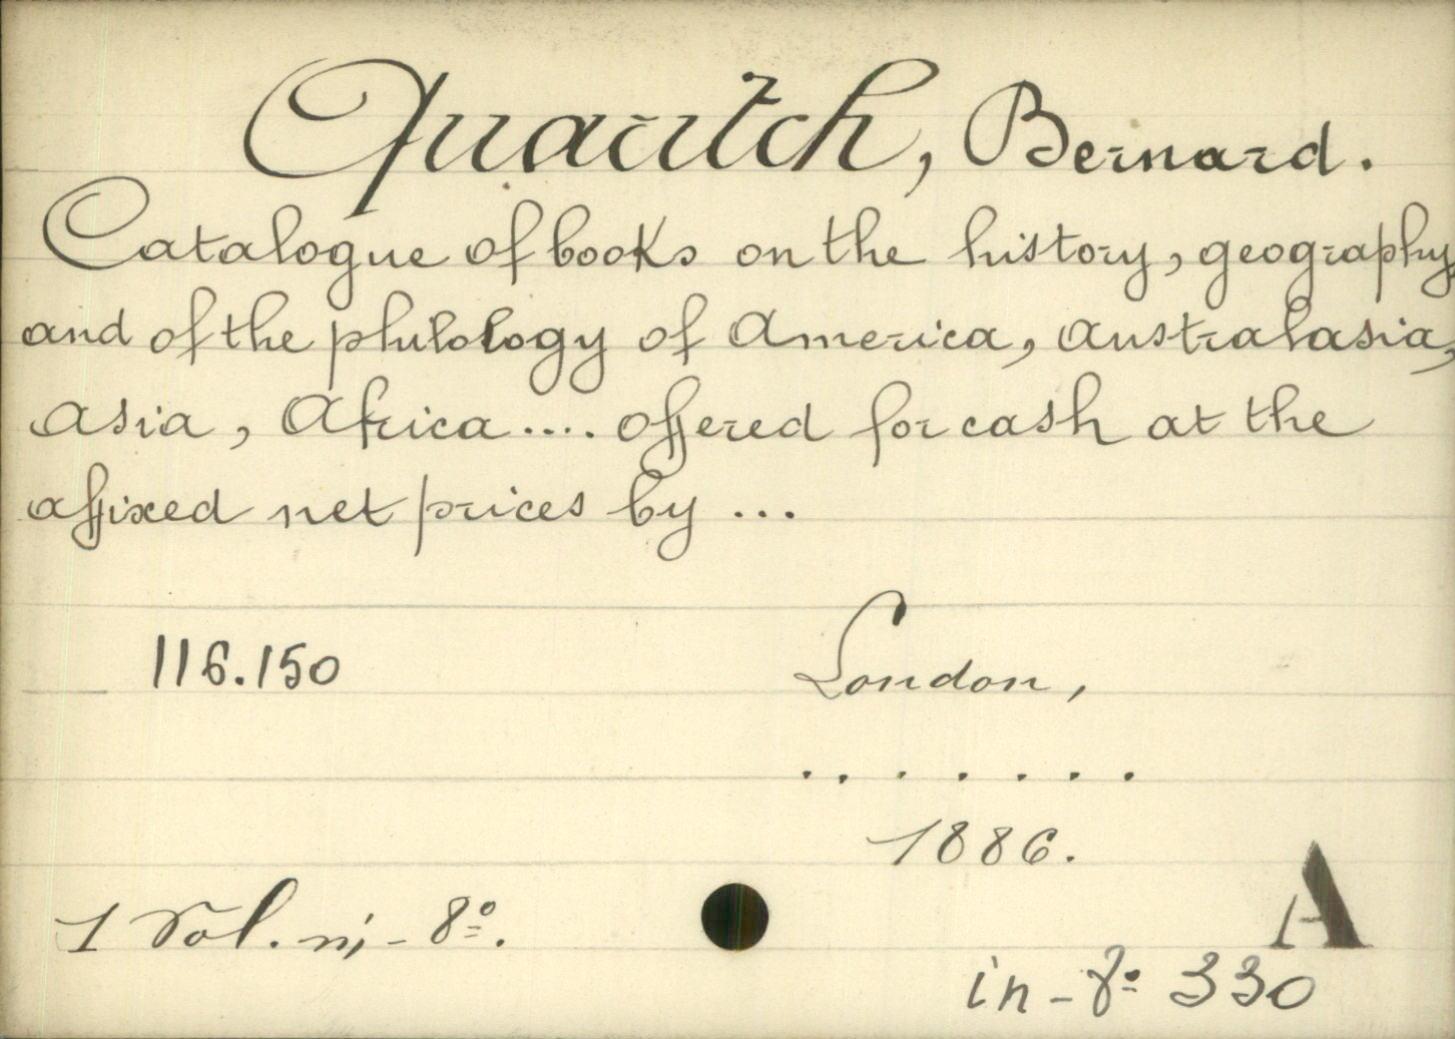 Quaritch, Bernard.
Catalogue of books on the history, geography,
and of the philology of America, Australasia,
Asia, Africa .... offered for cash at the
affixed net prices by ...
116.150
London,
. . . . . . .
1886.
1 Vol. in-8º.
A
in-8º 330